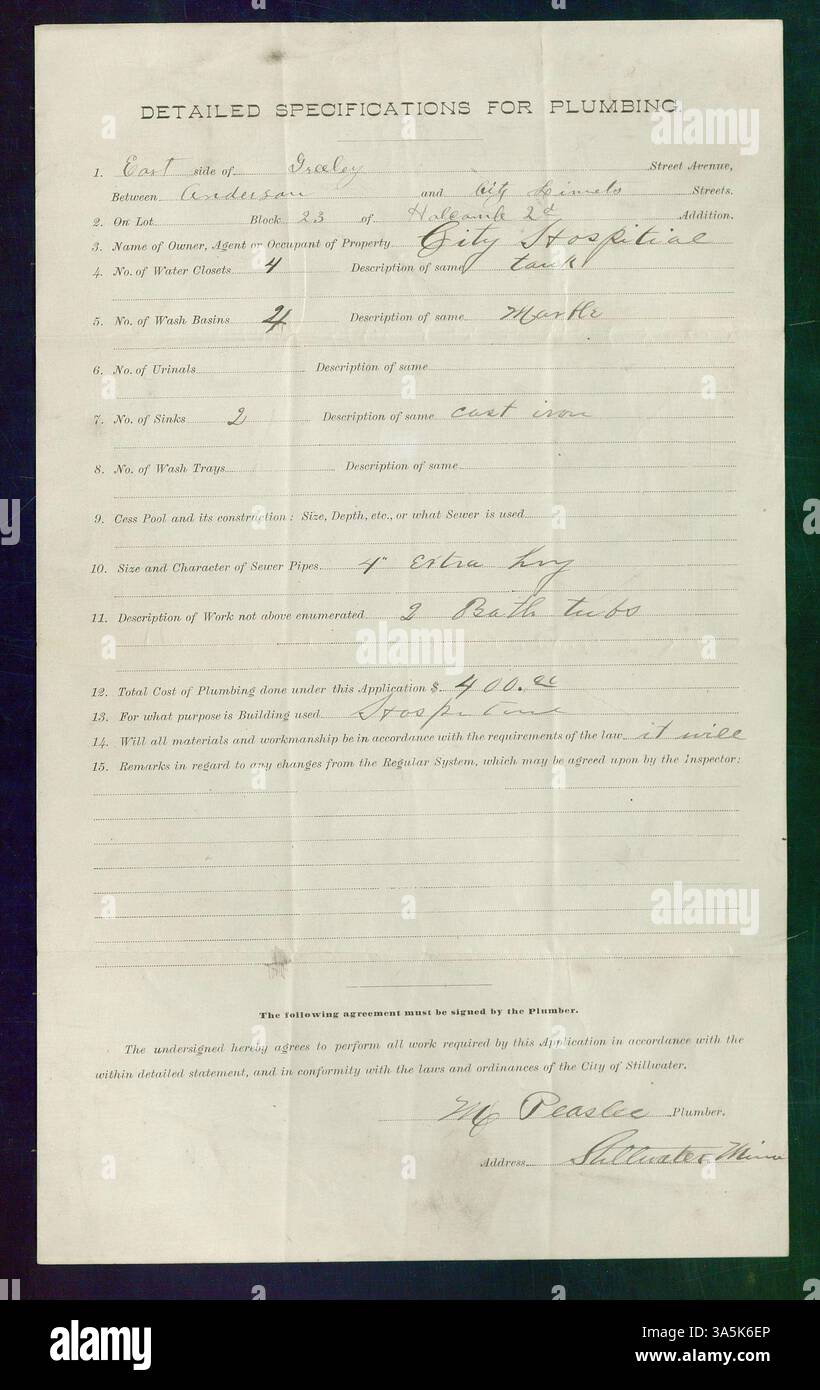 DETAILED SPECIFICATIONS FOR PLUMBING.
1. East side of Greeley Street Avenue,
Between Anderson and City Limets Streets.
2. On Lot Block 23 of Holcomb 2d Addition.
3. Name of Owner, Agent or Occupant of Property City Hospitial
4. No. of Water Closets 4 Description of same tank
5. No. of Wash Basins 4 Description of same Marble
6. No. of Urinals Description of same
7. No. of Sinks 2 Description of same cast iron
8. No. of Wash Trays Description of same
9. Cess Pool and its construction: Size, Depth, etc., or what Sewer is used
10. Size and Character of Sewer Pipes 4" Extra hvy
11. Description of Work not above enumerated 2 Bath tubs
12. Total Cost of Plumbing done under this Application $ 400.00
13. For what purpose is Building used
14. Will all materials and workmanship be in accordance with the requirements of the law it will
15. Remarks in regard to any changes from the Regular System, which may be agreed upon by the Inspector:
The following agreement must be signed by the Plumber.
The undersigned hereby agrees to perform all work required by this Application in accordance with the
within detailed statement, and in conformity with the laws and ordinances of the City of Stillwater.
M Peaslee Plumber.
Address Stillwater Minn
alamy
alamy
alamy
alamy
alamy
alamy
Image ID: 3A5K6EP
www.alamy.com